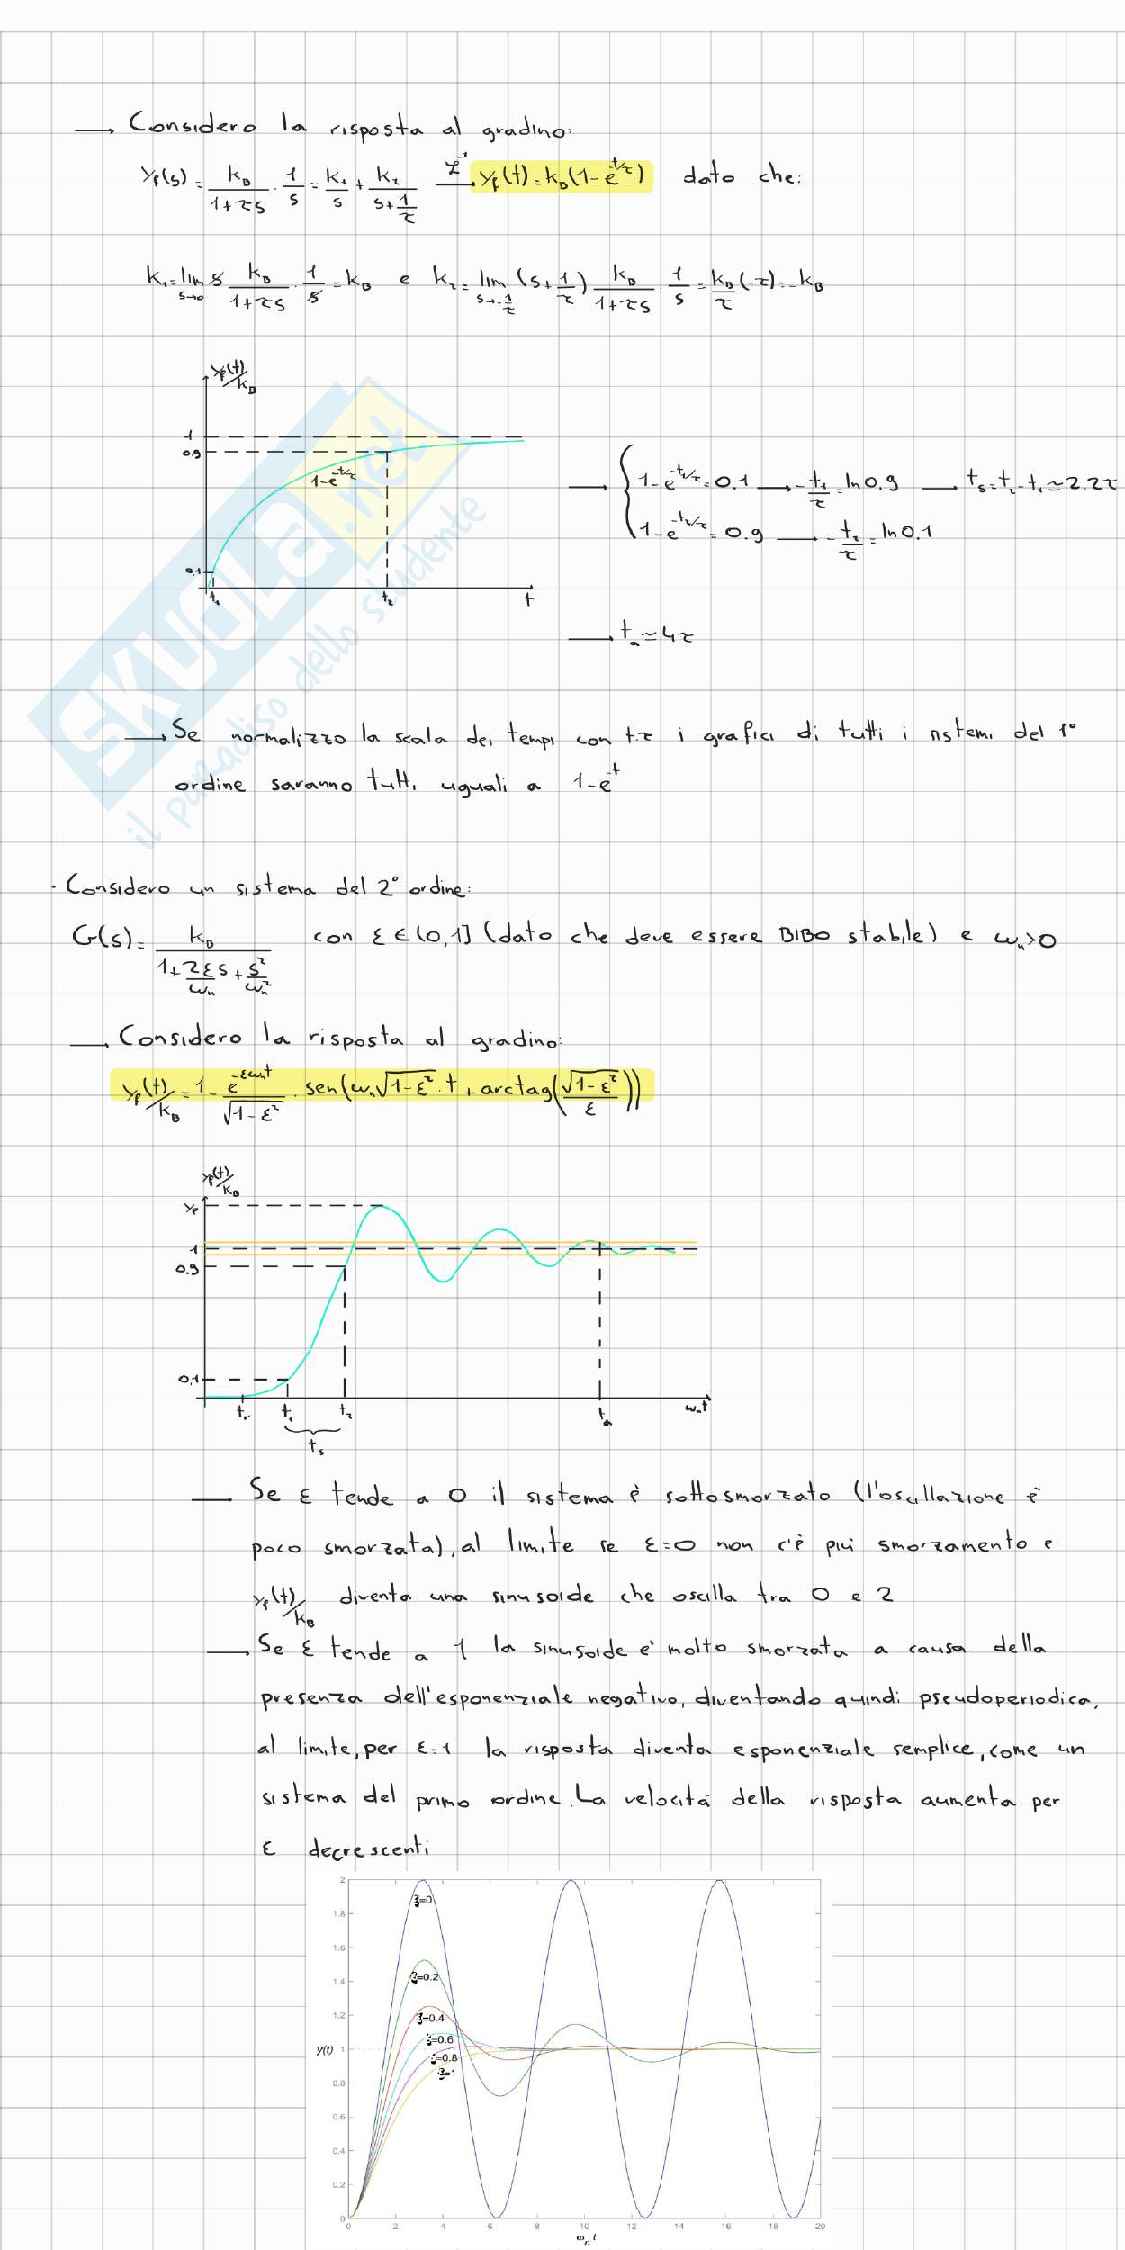 → Considero la risposta al gradino:
y_f(s) = k_0/(1+τs) · 1/s = k_1/s + k_2/(s+1/τ) →ℒ⁻¹ y_f(t) = k_0(1-e^(-t/τ)) dato che:
k_1 = lim s→0 s k_0/(1+τs) · 1/s = k_0 e k_2 = lim s→-1/τ (s+1/τ) k_0/(1+τs) 1/s = k_0/τ (-τ) = -k_0
y_f(t)/k_0
1
0.9
1-e^(-t/τ)
0.1
t_1 t_2 t
→ { 1-e^(-t_1/τ) = 0.1 → -t_1/τ = ln0.9 → t_s = t_2-t_1 ≃ 2.2τ
1-e^(-t_2/τ) = 0.9 → -t_2/τ = ln0.1
→ t_a ≃ 4τ
SKUOLA.net
il paradiso dello studente
→ Se normalizzo la scala dei tempi con t·τ i grafici di tutti i sistemi del 1°
ordine saranno tutti uguali a 1-e^(-t)
- Considero un sistema del 2° ordine:
G(s) = k_0/(1+2ξs/ω_n+s²/ω_n²) con ξ∈(0,1] (dato che deve essere BIBO stabile) e ω_n>0
→ Considero la risposta al gradino:
y_f(t)/k_0 = 1 - e^(-ξω_n t)/√(1-ξ²) · sen(ω_n√(1-ξ²)·t + arctag(√(1-ξ²)/ξ))
y_f(t)/k_0
y_p
1
0.9
0,1
t_r t_1 t_2 t_a ω_n t
t_s
— Se ξ tende a 0 il sistema è sottosmorzato (l'oscillazione è
poco smorzata), al limite se ξ=0 non c'è più smorzamento e
y_f(t)/k_0 diventa una sinusoide che oscilla tra 0 e 2
— Se ξ tende a 1 la sinusoide è molto smorzata a causa della
presenza dell'esponenziale negativo, diventando quindi pseudoperiodica,
al limite, per ξ=1 la risposta diventa esponenziale semplice, come un
sistema del primo ordine. La velocità della risposta aumenta per
ξ decrescenti
2
ξ=0
1.8
1.6
1.4
ξ=0.2
1.2
ξ=0.4
ξ=0.6
y(t) 1
ξ=0.8
0.8
0.6
0.4
0.2
0
0 2 4 6 8 10 12 14 16 18 20
ω_n t